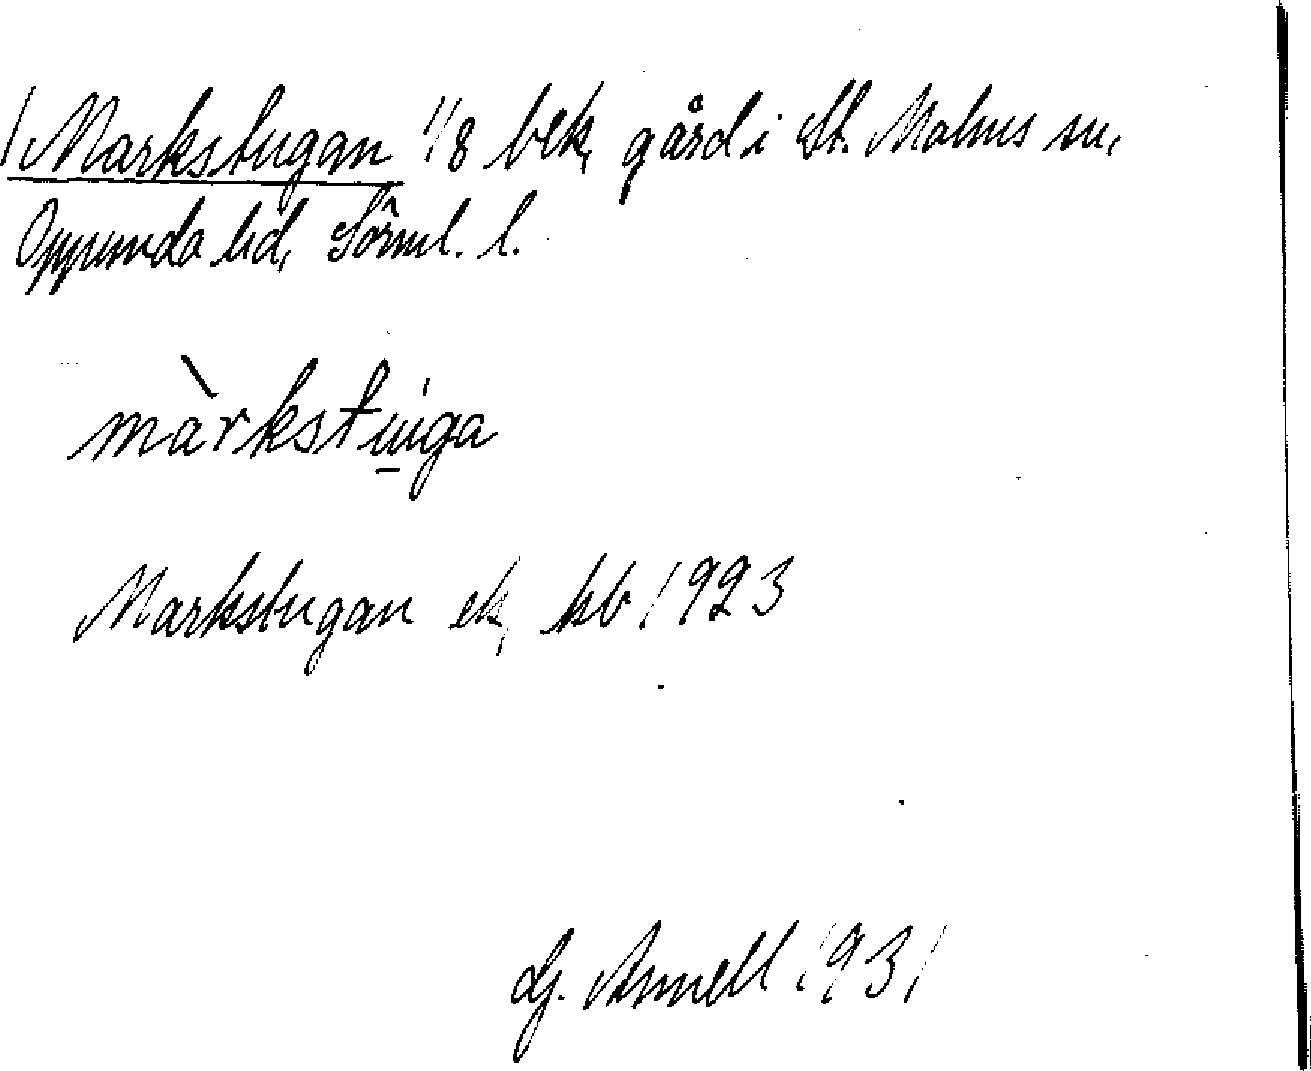 Markstugan 1/8 bek, gård i St. Malms sn,
Oppunda hd, Söml. l.
màrkstu̲ga
Markstugan ek, kb 1923
G. Annell 1931